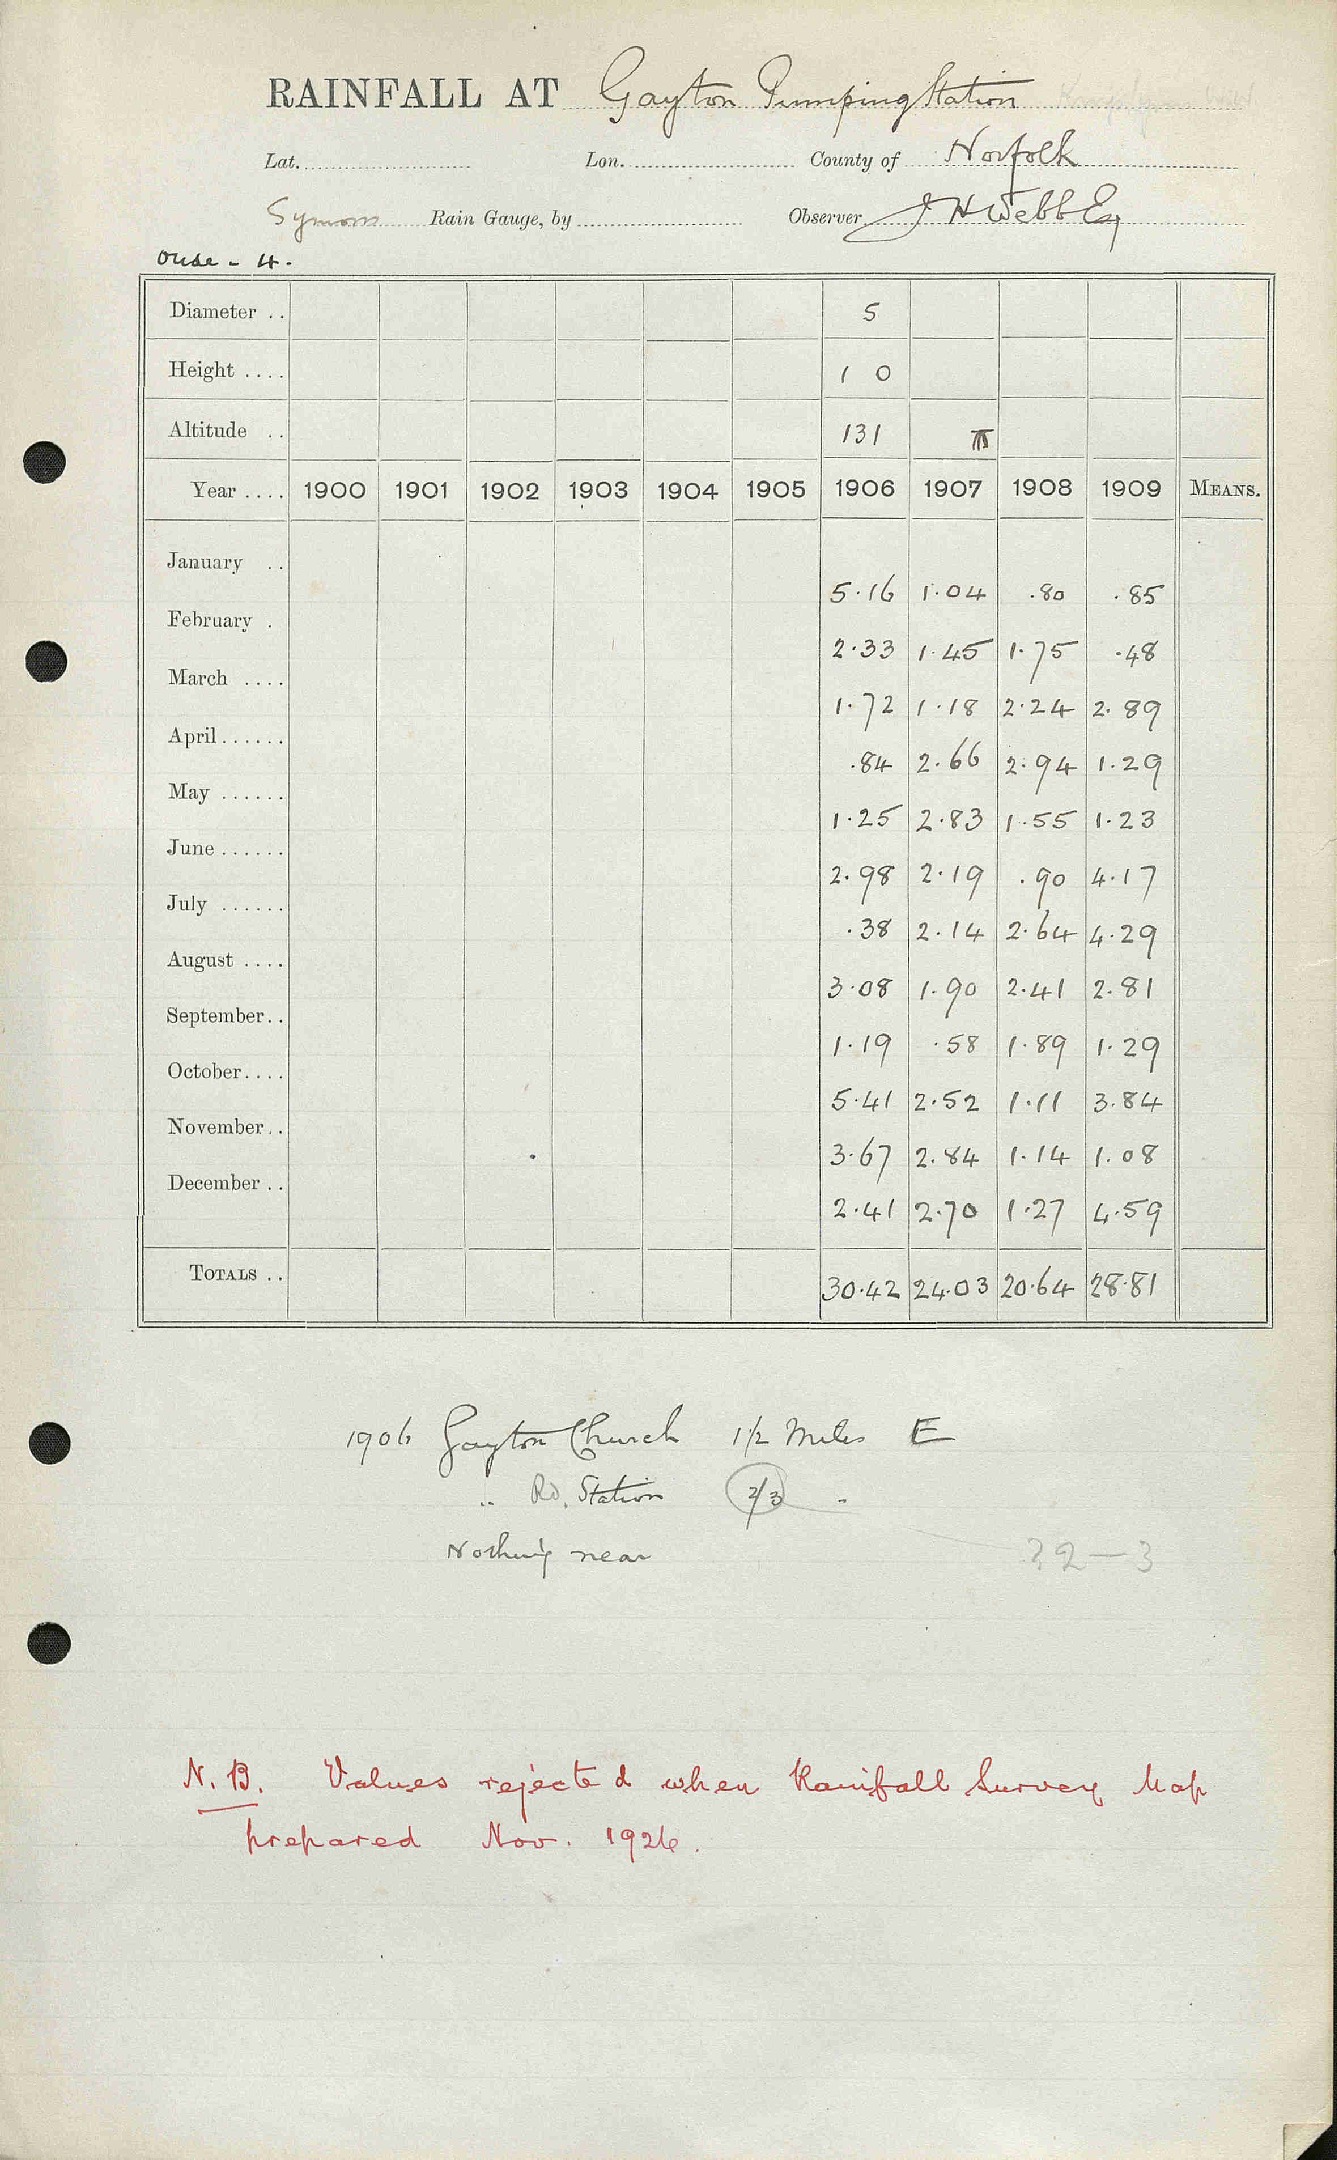 RAINFALL AT Gayton Pumping Station
Lat. Lon. County of Norfolk
Symons Rain Gauge, by Observer J H Webb Esq
Ouse - 4.
Diameter .. 5
Height .... 1 0
Altitude .. 131
Year .... 1900 1901 1902 1903 1904 1905 1906 1907 1908 1909 MEANS.
January .. 5.16 1.04 .80 .85
February . 2.33 1.45 1.75 .48
March .... 1.72 1.18 2.24 2.89
April ...... .84 2.66 2.94 1.29
May ...... 1.25 2.83 1.55 1.23
June ...... 2.98 2.19 .90 4.17
July ...... .38 2.14 2.64 4.29
August .... 3.08 1.90 2.41 2.81
September.. 1.19 .58 1.89 1.29
October.... 5.41 2.52 1.11 3.84
November.. 3.67 2.84 1.14 1.08
December .. 2.41 2.70 1.27 4.59
TOTALS .. 30.42 24.03 20.64 28.81
1906 Gayton Church 1 1/2 Miles E
" Rd. Station 2/3 "
Nothing near
22-3
N.B. Values rejected when Rainfall Survey Map
prepared Nov. 1926.